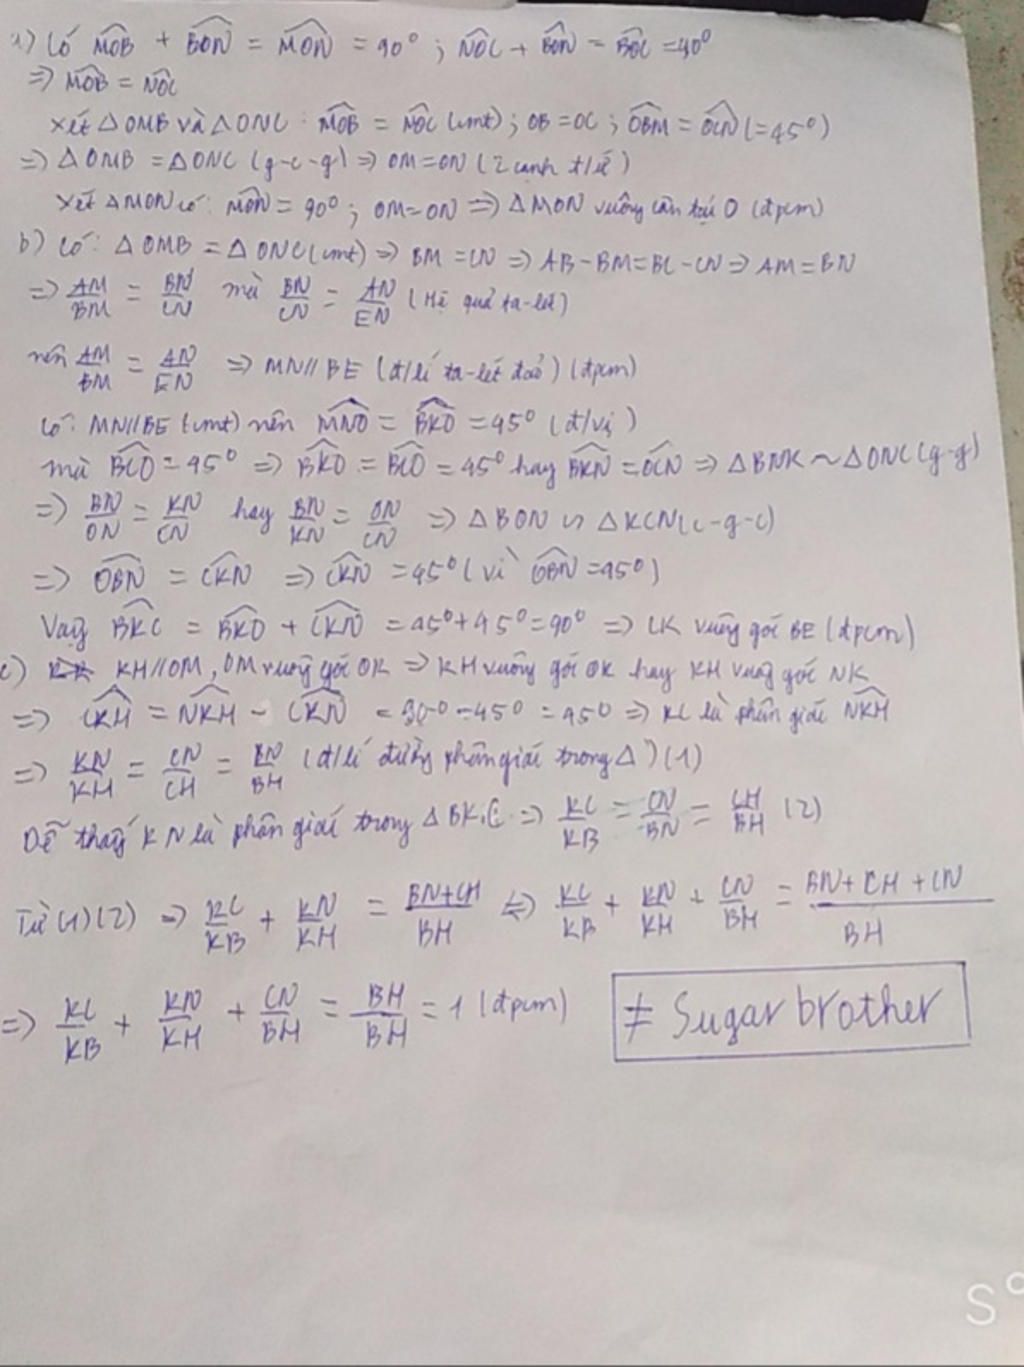 a) Có MOB + BON = MON = 90° ; NOC + BON = BOC = 90°
=> MOB = NOC
Xét ΔOMB và ΔONC : MOB = NOC (cmt) ; OB = OC ; OBM = OCN (= 45°)
=> ΔOMB = ΔONC (g-c-g) => OM = ON (2 cạnh t/ứ)
Xét ΔMON có: MON = 90° ; OM = ON => ΔMON vuông cân tại O (đpcm)
b) Có: ΔOMB = ΔONC (cmt) => BM = CN => AB - BM = BC - CN => AM = BN
=> AM/BM = BN/CN mà BN/CN = AN/EN (Hệ quả ta-lét)
nên AM/BM = AN/EN => MN // BE (đ/lí ta-lét đảo) (đpcm)
Có: MN // BE (cmt) nên MNO = BKO = 45° (đ/vị)
mà BCO = 45° => BKO = BCO = 45° hay BKN = OCN => ΔBNK ~ ΔONC (g-g)
=> BN/ON = KN/CN hay BN/KN = ON/CN => ΔBON ∽ ΔKCN (c-g-c)
=> OBN = CKN => CKN = 45° (vì OBN = 45°)
Vậy BKC = BKO + CKN = 45° + 45° = 90° => CK vuông góc BE (đpcm)
c) KH // OM , OM vuông góc OK => KH vuông góc OK hay KH vuông góc NK
=> CKH = NKH - CKN = 90° - 45° = 45° => KC là phân giác NKH
=> KN/KH = CN/CH = BN/BH (đ/lí đường phân giác trong Δ) (1)
Dễ thấy KN là phân giác trong ΔBKC => KC/KB = CN/BN = CH/BH (2)
Từ (1) (2) => KC/KB + KN/KH = BN+CH/BH <=> KC/KB + KN/KH + CN/BH = BN+CH+CN/BH
=> KC/KB + KN/KH + CN/BH = BH/BH = 1 (đpcm)
≠ Sugar brother
S°